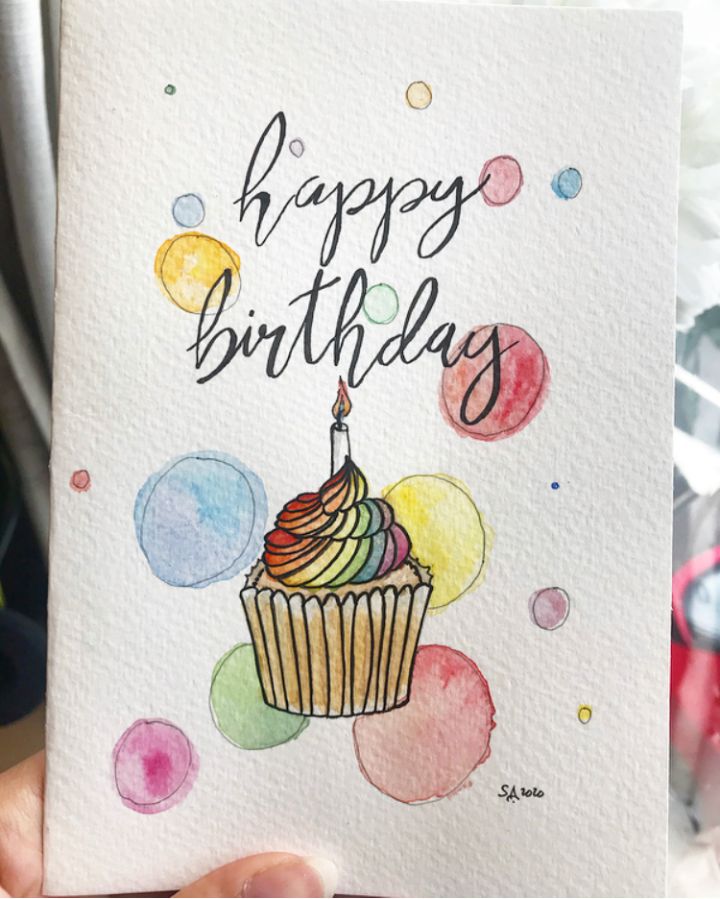 happy
birthday
SA 2020